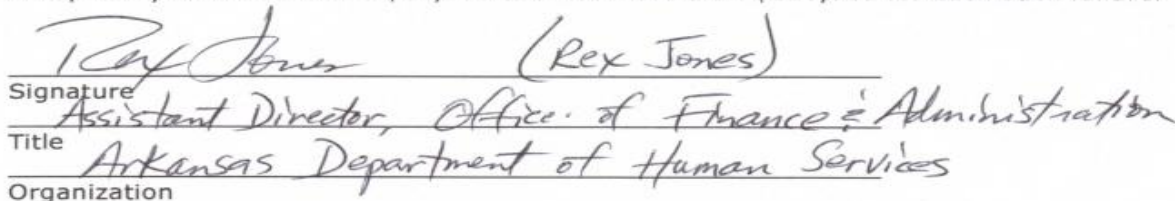 Rex Jones (Rex Jones)
Signature
Assistant Director, Office of Finance & Administration
Title
Arkansas Department of Human Services
Organization